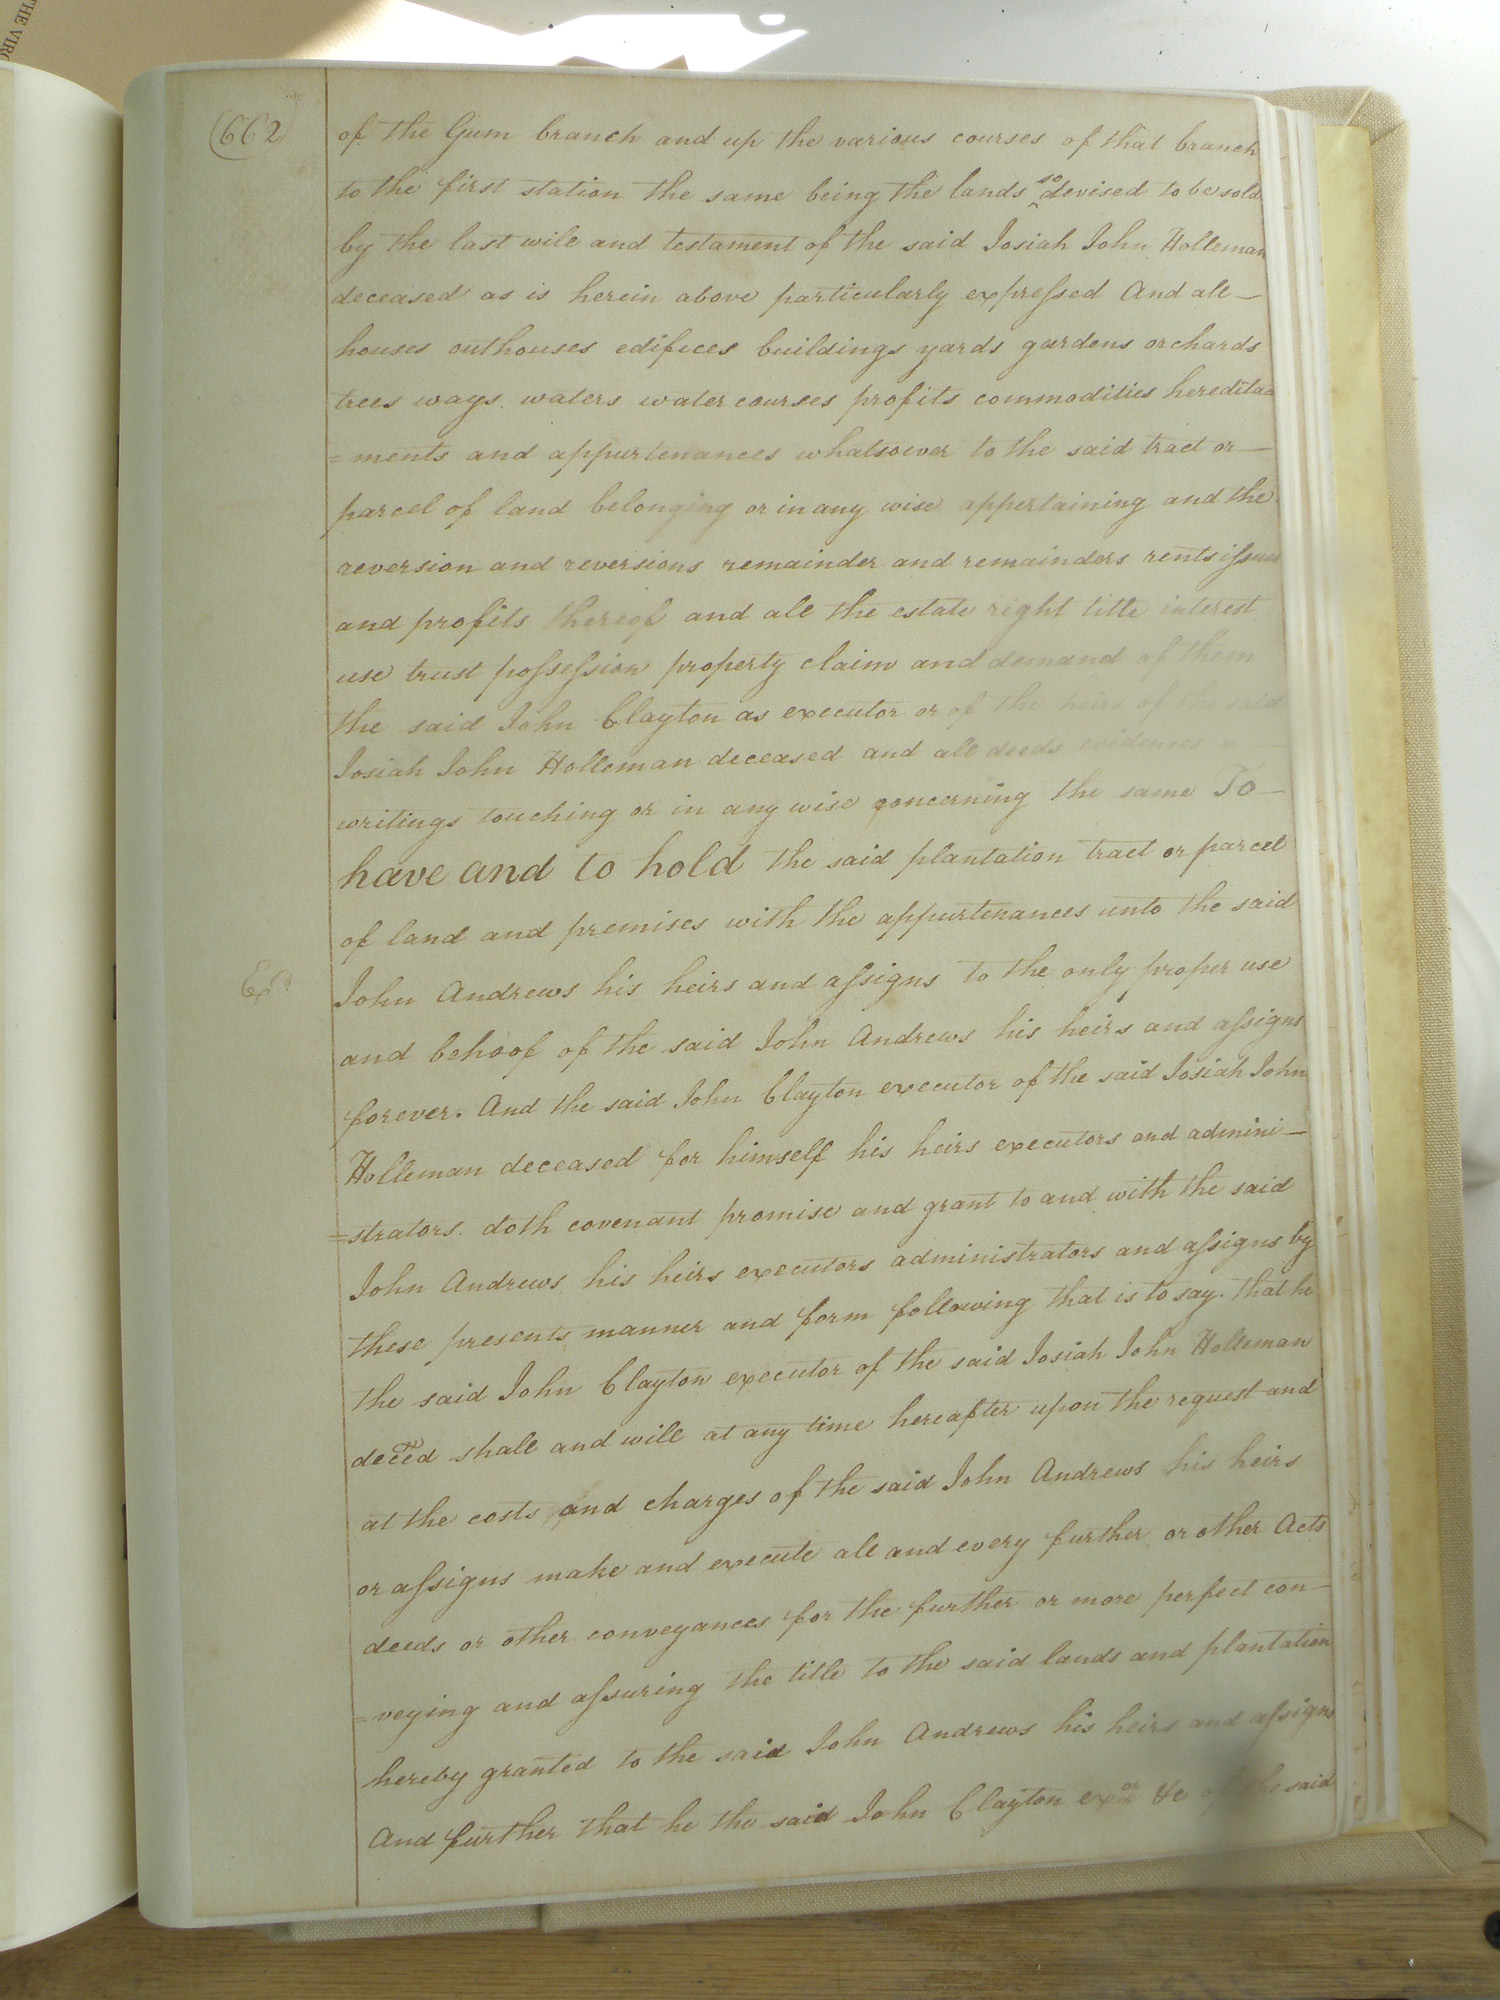 THE VIRG
(662)
of the Gum branch and up the various courses of that branch
to the first station the same being the lands so devised to be sold
by the last will and testament of the said Josiah John Holleman
deceased as is herein above particularly expressed And all —
houses outhouses edifices buildings yards gardens orchards
trees ways waters water courses profits commodities heredita
=ments and appurtenances whatsoever to the said tract or —
parcel of land belonging or in any wise appertaining and the
reversion and reversions remainder and remainders rents issues
and profits thereof and all the estate right title interest
use trust possession property claim and demand of them
the said John Clayton as executor or of the heirs of the said
Josiah John Holleman deceased and all deeds evidences
writings touching or in any wise concerning the same To —
have and to hold the said plantation tract or parcel
of land and premises with the appurtenances unto the said
Exd.
John Andrews his heirs and assigns to the only proper use
and behoof of the said John Andrews his heirs and assigns
forever. And the said John Clayton executor of the said Josiah John
Holleman deceased for himself his heirs executors and admini —
=strators. doth covenant promise and grant to and with the said
John Andrews his heirs executors administrators and assigns by
these presents manner and form following that is to say. that he
the said John Clayton executor of the said Josiah John Holleman
deced shall and will at any time hereafter upon the request and
at the costs and charges of the said John Andrews his heirs
or assigns make and execute all and every further or other Acts
deeds or other conveyances for the further or more perfect con —
=veying and assuring the title to the said lands and plantation
hereby granted to the said John Andrews his heirs and assigns
And further that he the said John Clayton exor &c of the said